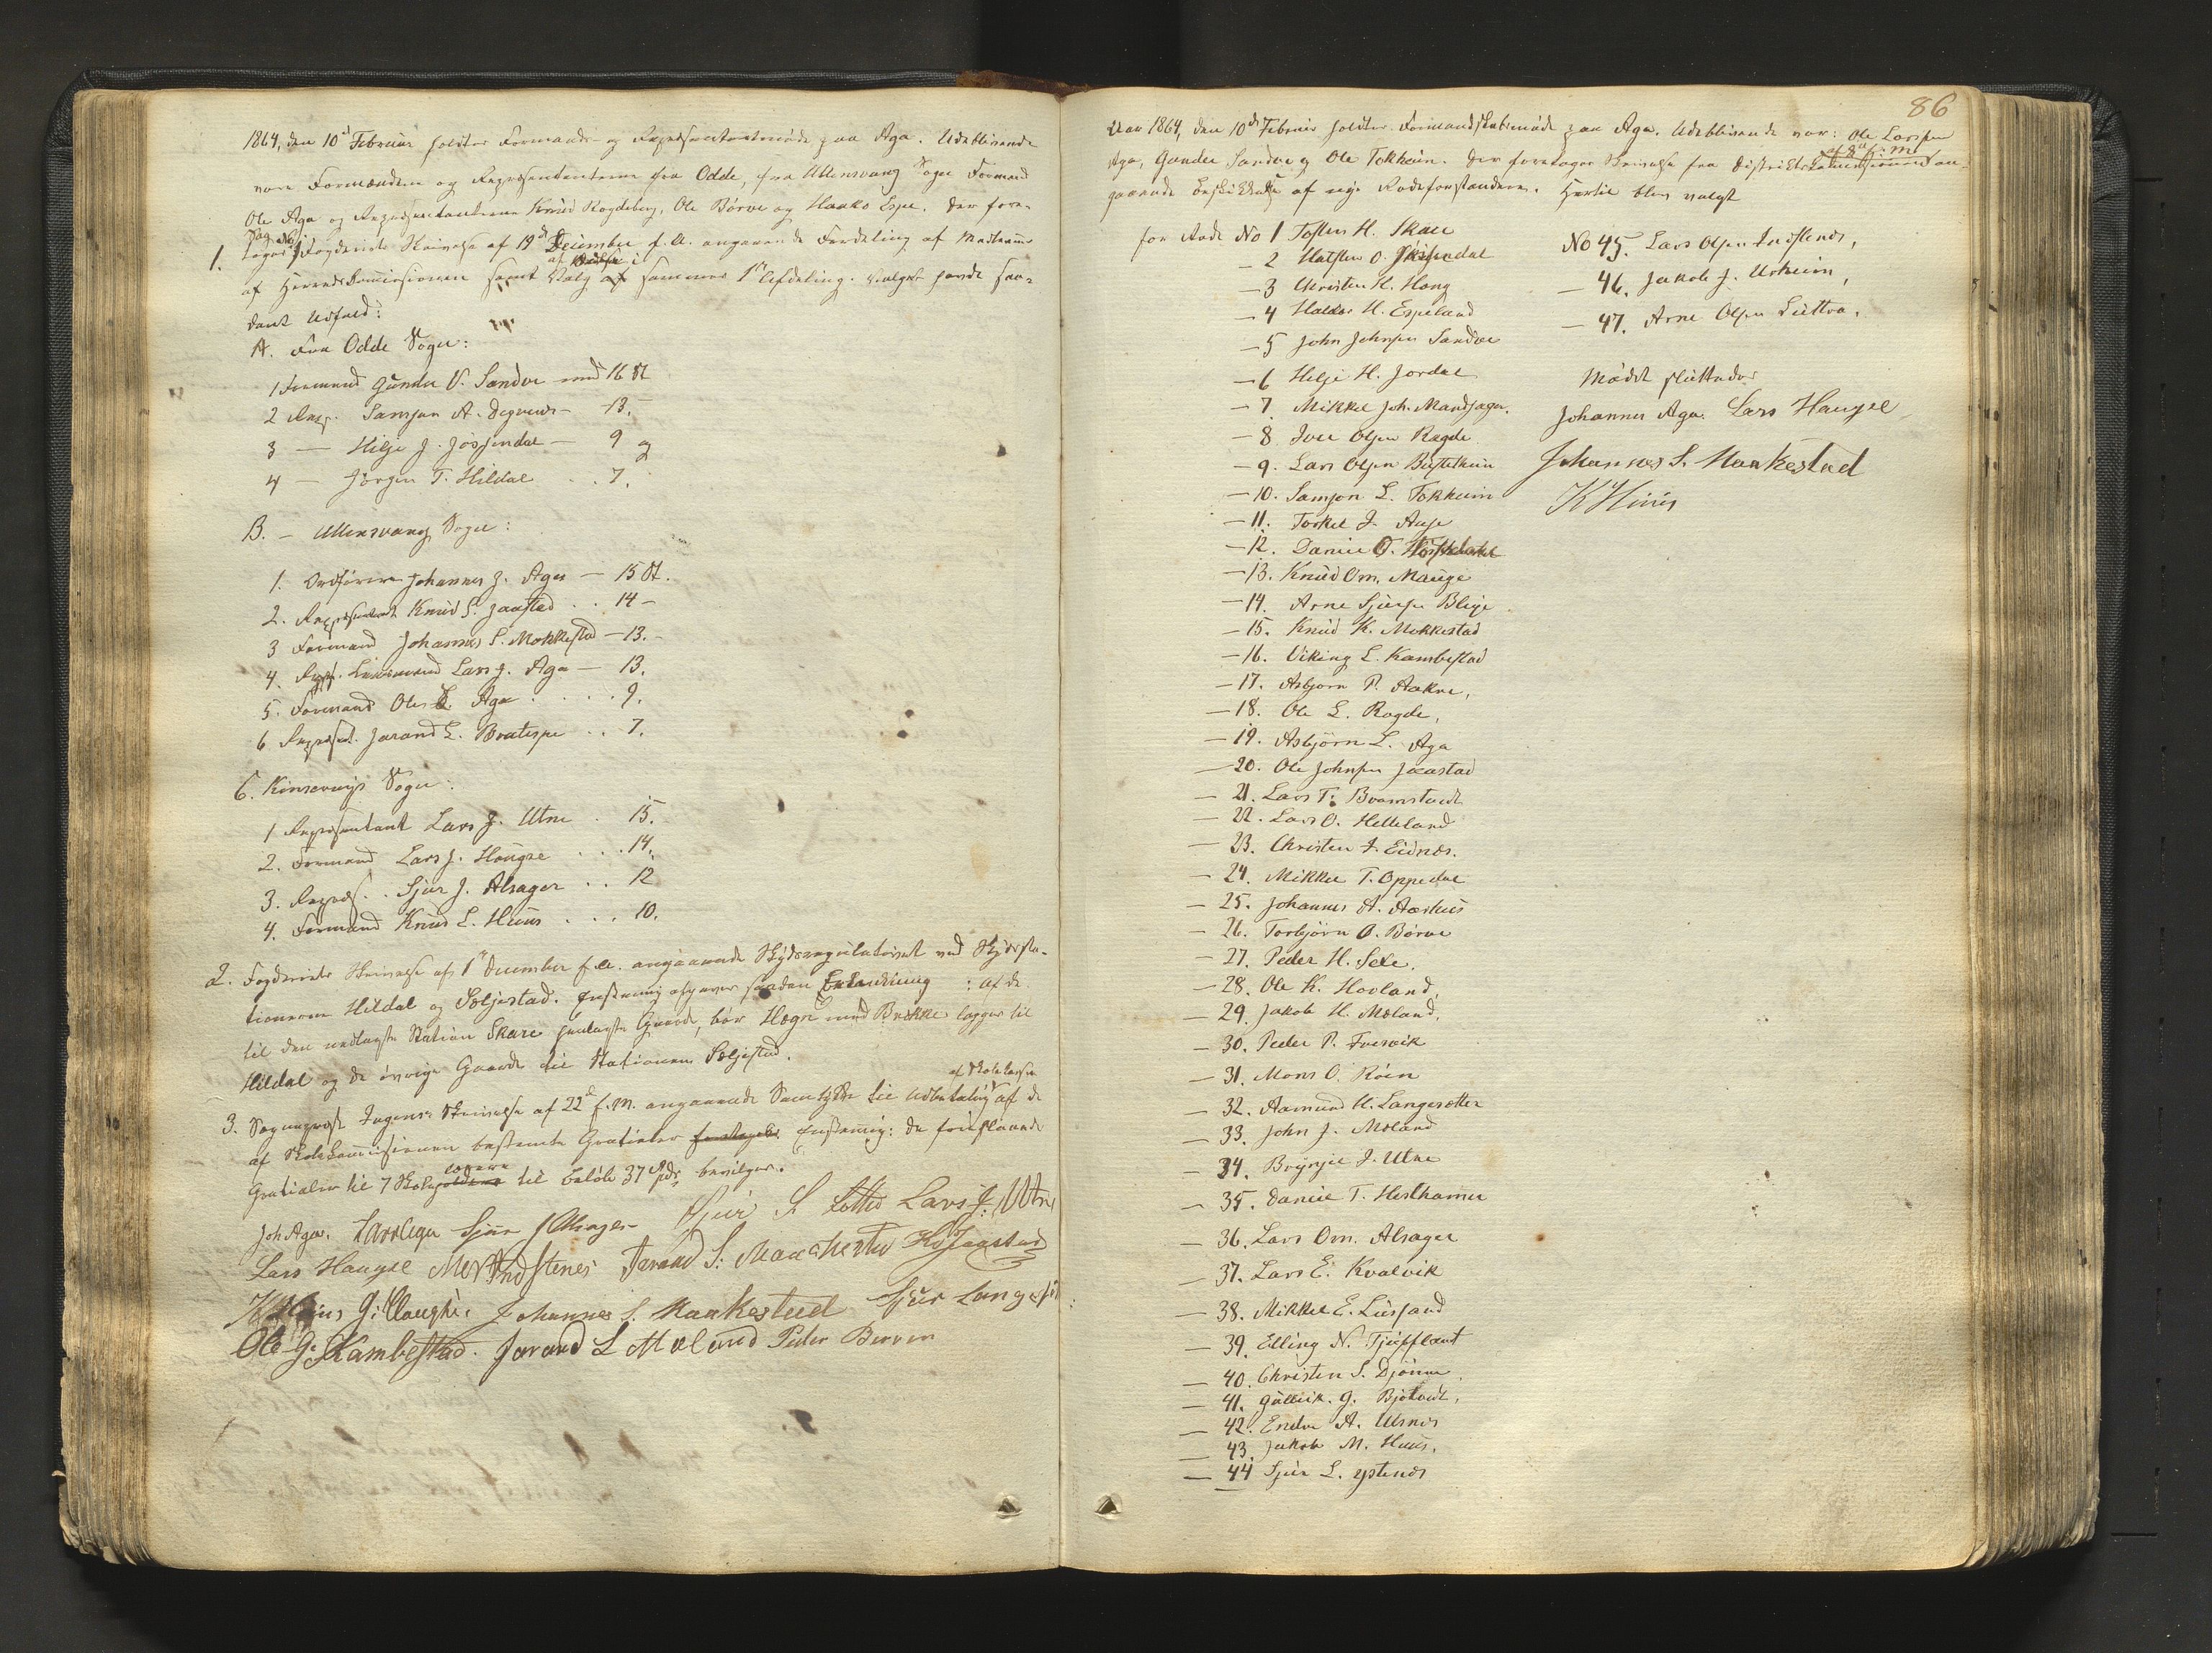 1864, den 10de Februar holdtes Formands- og Repræsentantmøde paa Aga. Udeblivende
vare Formændene og Repræsentanterne fra Odde, fra Ullensvang Sogn Formand
Ole Aga og Repræsentanterne Knud Rogdeberg, Ole Börve og Haako Espe. Der fore-
1. toges Fogderiets Skrivelse af 19de December f. A. angaaende Fordeling af Medlemmer
af Herredscommissionen samt Valg af sammes 1ste Afdeling. Valget havde saa-
dant Udfald:
A. Fra Odde Sogn:
1 Formand Gunder V. Sandve med 16 St
2 Repr. Samson A. Degrenæs - 13.
3 — Helje J. Jøssendal — 9 og
4 — Jørgen T. Hildal . . 7.
B. — Ullensvang Sogn:
1. Ordfører Johannes J. Aga — 15 St.
2. Repræsentant Knud S. Jaastad . . 14 -
3 Formand Johannes S. Mokkestad — 13. -
4. Repr. Lensmand Lars J. Aga — 13.
5. Formand Ole L. Aga . . . . 9.
6 Repræsent. Jarand L. Bratespe . . 7.
C. Kinservigs Sogn:
1 Repræsentant Lars J. Utne . 15.
2. Formand Lars J. Haugse . . . 14.
3. Repræs. . Sjur J. Alsager . . 12
4. Formand Knud L. Huus . . . 10.
2. Fogderiets Skrivelse af 1ste December f. A. angaaende Skydsregulativet ved Skydssta-
tionerne Hildal og Seljestad. Enstemmig afgaves saadan Erklæring: af de
til den nedlagte Station Skare henlagte Gaarde, bör Hægre med Brække lægges til
Hildal og de övrige Gaarde til Stationen Seljestad.
3. Sogneprest Skrivelse af 22de f. M. angaaende Samtykke til Udbetaling af Skolekassen af de
af Skolecommissionen bestemte Gratialer Enstemmig: de
Gratialer til 7 Skole til Beløb 37 Spd. bevilges.
Joh Aga. Lars Aga Sjur J Alsager Sjur S Lotthe Lars J. Utne
Lars Haugse Jarand S: Maakestad KSJaastad
K Huus Johannes S. Maakestad Sjur
Ole G. Kambestad. Jarand L Mæland Peder Berven
86
Aar 1864, den 10de Februar holdtes Formandskabsmøde paa Aga. Udeblivende var: Ole Larsen
Aga, Gunder Sandve og Ole Tokheim. Der foretoges Skrivelse fra Districts-Commissionen af 8de f. M. an-
gaaende Beskikkelse af nye Rodeforstandere. Hertil blev valgt
for Rode No 1 Tosten H. Skare
— 2 Halsten O. Jøsendal
— 3 Christen H. Hong
— 4 Haldor H. Espeland
— 5 John Johnsen Sandve
— 6 Helje H. Jordal
— 7. Mikkel Joh. Mandsager.
— 8 Iver Olsen Ragde
— 9. Lars Olsen Bustetheim
— 10. Samson L. Tokheim
— 11. Torkel J. Aase
— 12. Daniel O.
— 13. Knud Om. Mauge
— 14. Arne Sjursen Bleje
— 15. Knud K. Mokkestad
— 16. Viking L. Kambestad
— 17. Asbjørn P. Aakre,
— 18. Ole L. Rogde,
— 19. Asbjörn L. Aga
— 20. Ole Johnsen Jaastad
— 21. Lars T. Bramstvedt
— 22. Lars O. Helleland
— 23. Christen J. Eidnæs.
— 24. Mikkel T. Oppedal
— 25. Johannes A. Aarhuus
— 26. Torbjörn O. Börve
— 27. Peder H. Sexe.
— 28. Ole K. Hovland.
— 29. Jakob H. Mæland.
— 30. Peder P. Fresvik
— 31. Mons O. Röen
— 32. Aamund H. Langesætter
— 33. John J. Mæland
— 34. Brynjel J. Utne
— 35. Daniel T. Hesthamer
— 36. Lars Om. Alsager
— 37. Lars E. Kvalvik
— 38. Mikkel E. Lussand
— 39. Elling N. Tjoflaat
— 40. Christen S. Djönne
— 41. Gulleik. G. Bjotvedt,
— 42. Endre A. Ulsnes
— 43. Jakob M. Huus.
— 44 Sjur L. Ystenæs
No 45. Lars Olsen Indstenæs,
— 46. Jakob J. Urheim,
— 47. Arne Olsen Luttro.
Mødet sluttedes
Johannes Aga. Lars Haugse
Johannes S. Maakestad
K Huus